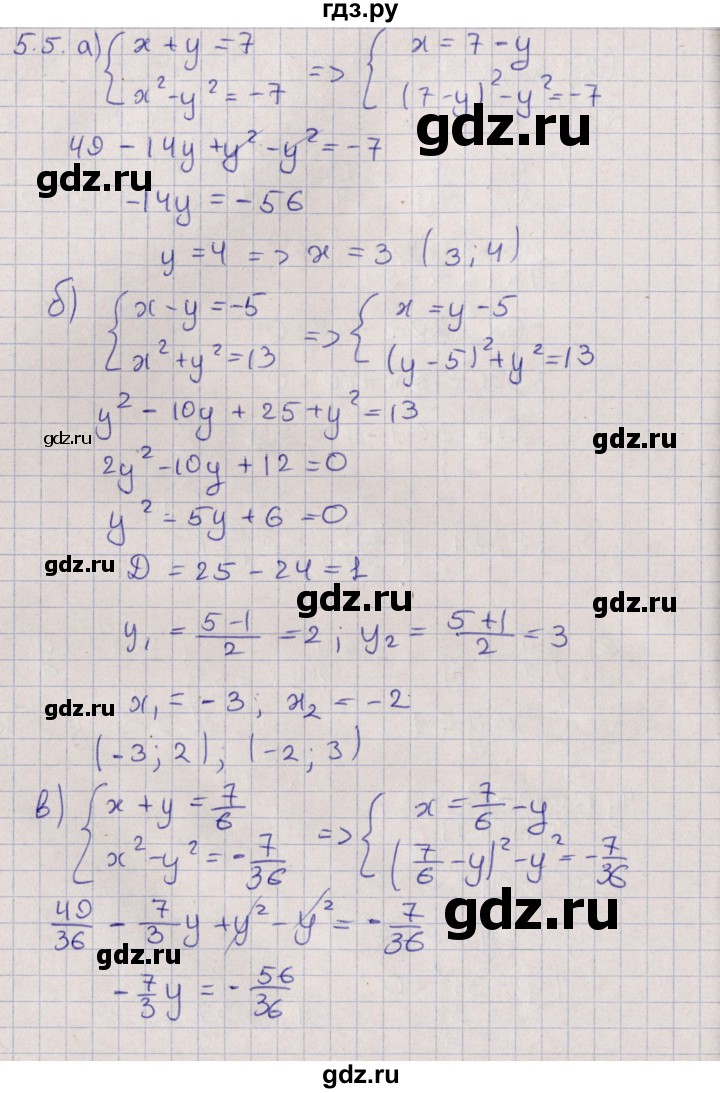 гдз.ру
5.5. а) { x + y = 7 => { x = 7 - y
x² - y² = -7 (7 - y)² - y² = -7
gdz.ru
49 - 14y + y² - y² = -7
gdz.ru
-14y = -56
y = 4 => x = 3 (3; 4)
б) { x - y = -5 => { x = y - 5
x² + y² = 13 (y - 5)² + y² = 13
y² - 10y + 25 + y² = 13
gdz.ru gdz.ru
2y² - 10y + 12 = 0
y² - 5y + 6 = 0
gdz.ru Д = 25 - 24 = 1
gdz.ru gdz.ru
y₁ = (5-1)/2 = 2; y₂ = (5+1)/2 = 3
gdz.ru x₁ = -3; x₂ = -2
(-3; 2); (-2; 3)
в) { x + y = 7/6 => { x = 7/6 - y
x² - y² = -7/36 (7/6 - y)² - y² = -7/36
49/36 - 7/3 y + y² - y² = -7/36
gdz.ru gdz.ru
-7/3 y = -56/36
gdz.ru